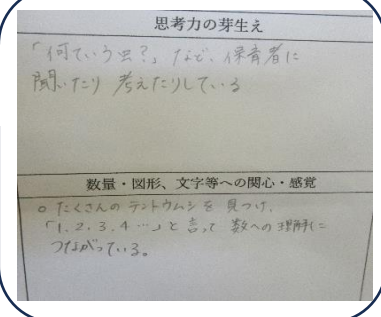 思考力の芽生え
「何ていう虫?」など、保育者に
聞いたり 考えたりしている
数量・図形、文字等への関心・感覚
○ たくさんの テントウムシを 見つけ、
「1. 2. 3. 4 …」と 言って 数への 理解に
つながっている。